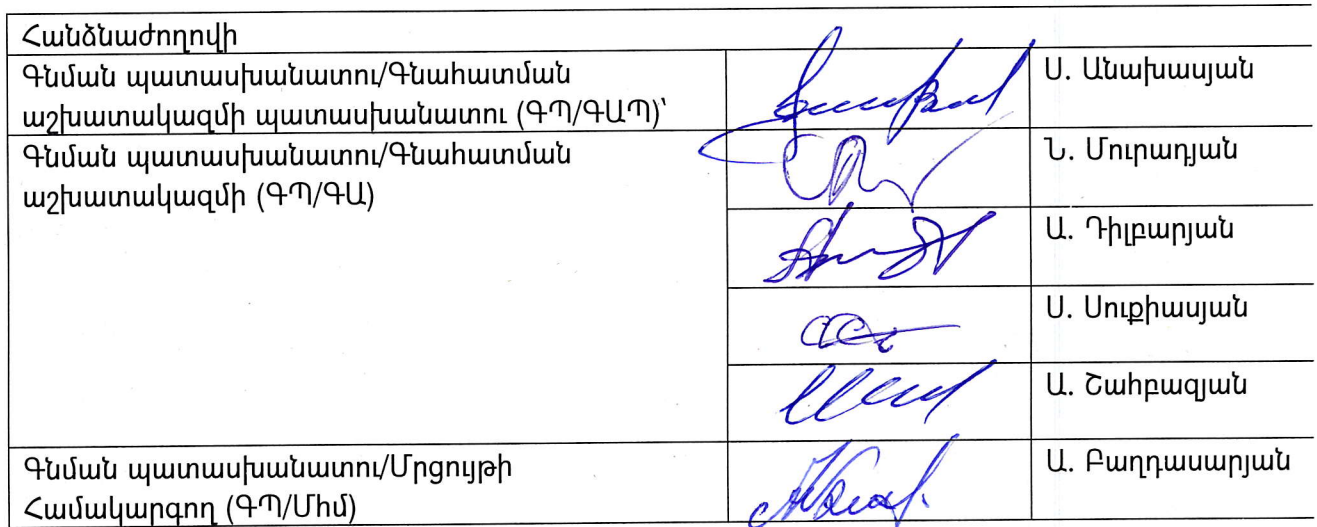 Հանձնաժողովի
Գնման պատասխանատու/Գնահատման
աշխատակազմի պատասխանատու (ԳՊ/ԳԱՊ)՝
Ս. Անախասյան
Գնման պատասխանատու/Գնահատման
աշխատակազմի (ԳՊ/ԳԱ)
Ն. Մուրադյան
Ա. Դիլբարյան
Ս. Սուքիասյան
Ա. Շահբազյան
Գնման պատասխանատու/Մրցույթի
Համակարգող (ԳՊ/Միմ)
Ա. Բաղդասարյան